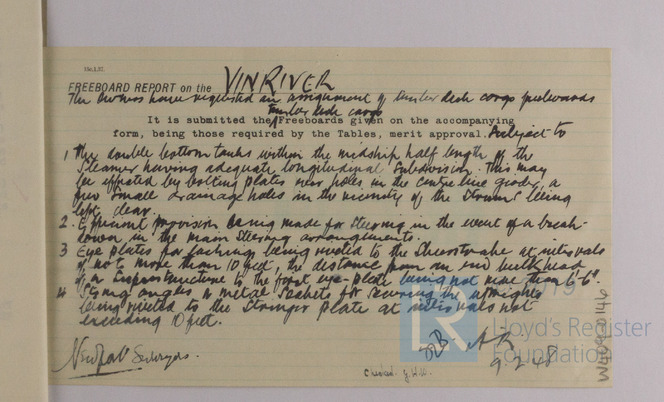 FREEBOARD REPORT on the VINRIVER
The Owners have requested an assignment of timber deck cargo freeboards
timber deck cargo
It is submitted the Freeboards given on the accompanying
form, being those required by the Tables, merit approval. Subject to
1 The double bottom tanks within the midship half length of the
Steamer having adequate longitudinal subdivision. This may
be effected by bolting plates over holes in the centre line girder, a
few small drainage holes in the vicinity of the being
left clear.
2. Efficient provision being made for steering in the event of a break-
down in the main steering arrangements.
3 Eye plates for lashings being riveted to the Sheerstrake at intervals
of not more than 10 feet, the distance from an end bulkhead
of a Superstructure to the first eye-plate being not more than 6'-6".
4 Strong angles or metal sockets for securing the uprights
being riveted to the Stringer plate at intervals not
exceeding 10 feet.
Lloyd's Register
Foundation
9.2.48